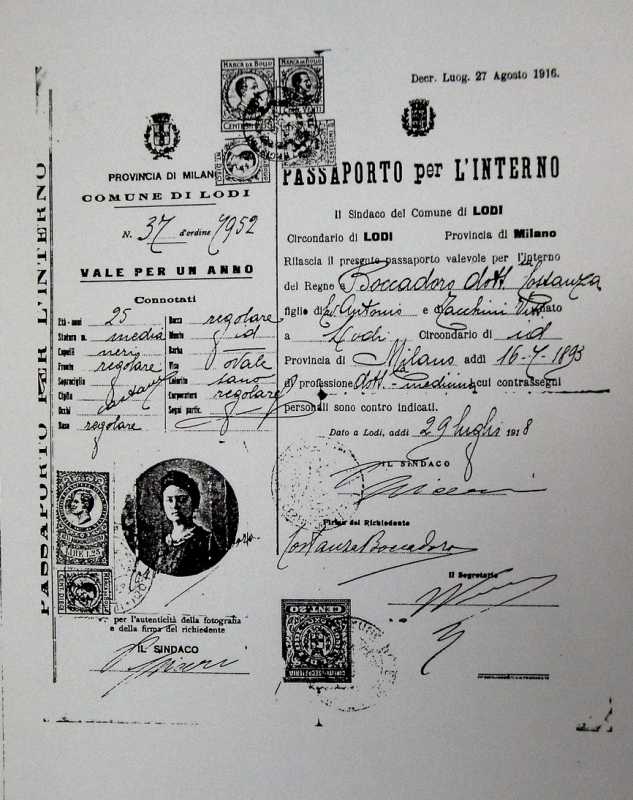 PASSAPORTO PER L'INTERNO
MARCA DA BOLLO
MARCA DA BOLLO
PROVINCIA DI MILANO
COMUNE DI LODI
N. 37 d'ordine 7952
VALE PER UN ANNO
Connotati
Età - anni 25
Statura m. media
Capelli neri
Fronte regolare
Sopracciglia
Ciglia castane
Occhi
Naso regolare
Bocca regolare
Mento id
Barba
Viso ovale
Colorito sano
Corporatura regolare
Segni partic.
LIRE 1.25
per l'autenticità della fotografia
e della firma del richiedente
IL SINDACO
Decr. Luog. 27 Agosto 1916.
PASSAPORTO per L'INTERNO
Il Sindaco del Comune di LODI
Circondario di LODI Provincia di Milano
Rilascia il presente passaporto valevole per l'interno
del Regno a Boccadoro dott. Costanza
figlio di Antonio e Zacchini nato
a Lodi Circondario di id
Provincia di Milano addì 16-7-1893
di professione dott. medicina cui contrassegni
personali sono contro indicati.
Dato a Lodi, addì 29 luglio 1918
IL SINDACO
Firma del Richiedente
Costanza Boccadoro
Il Segretario
CENT. 20